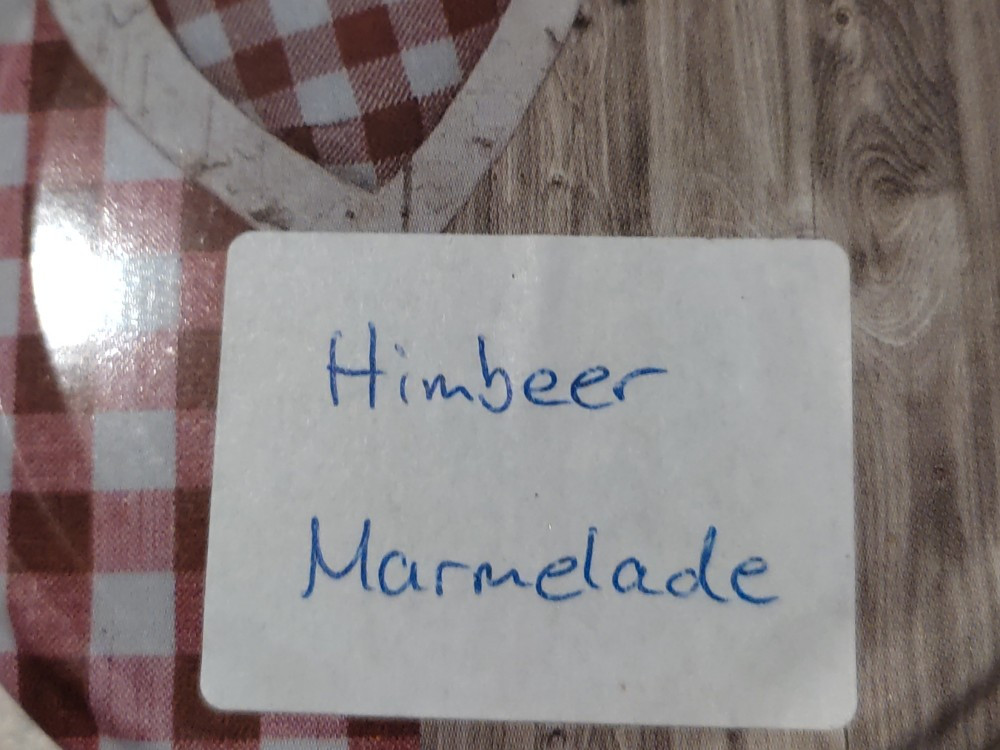 Himbeer
Marmelade